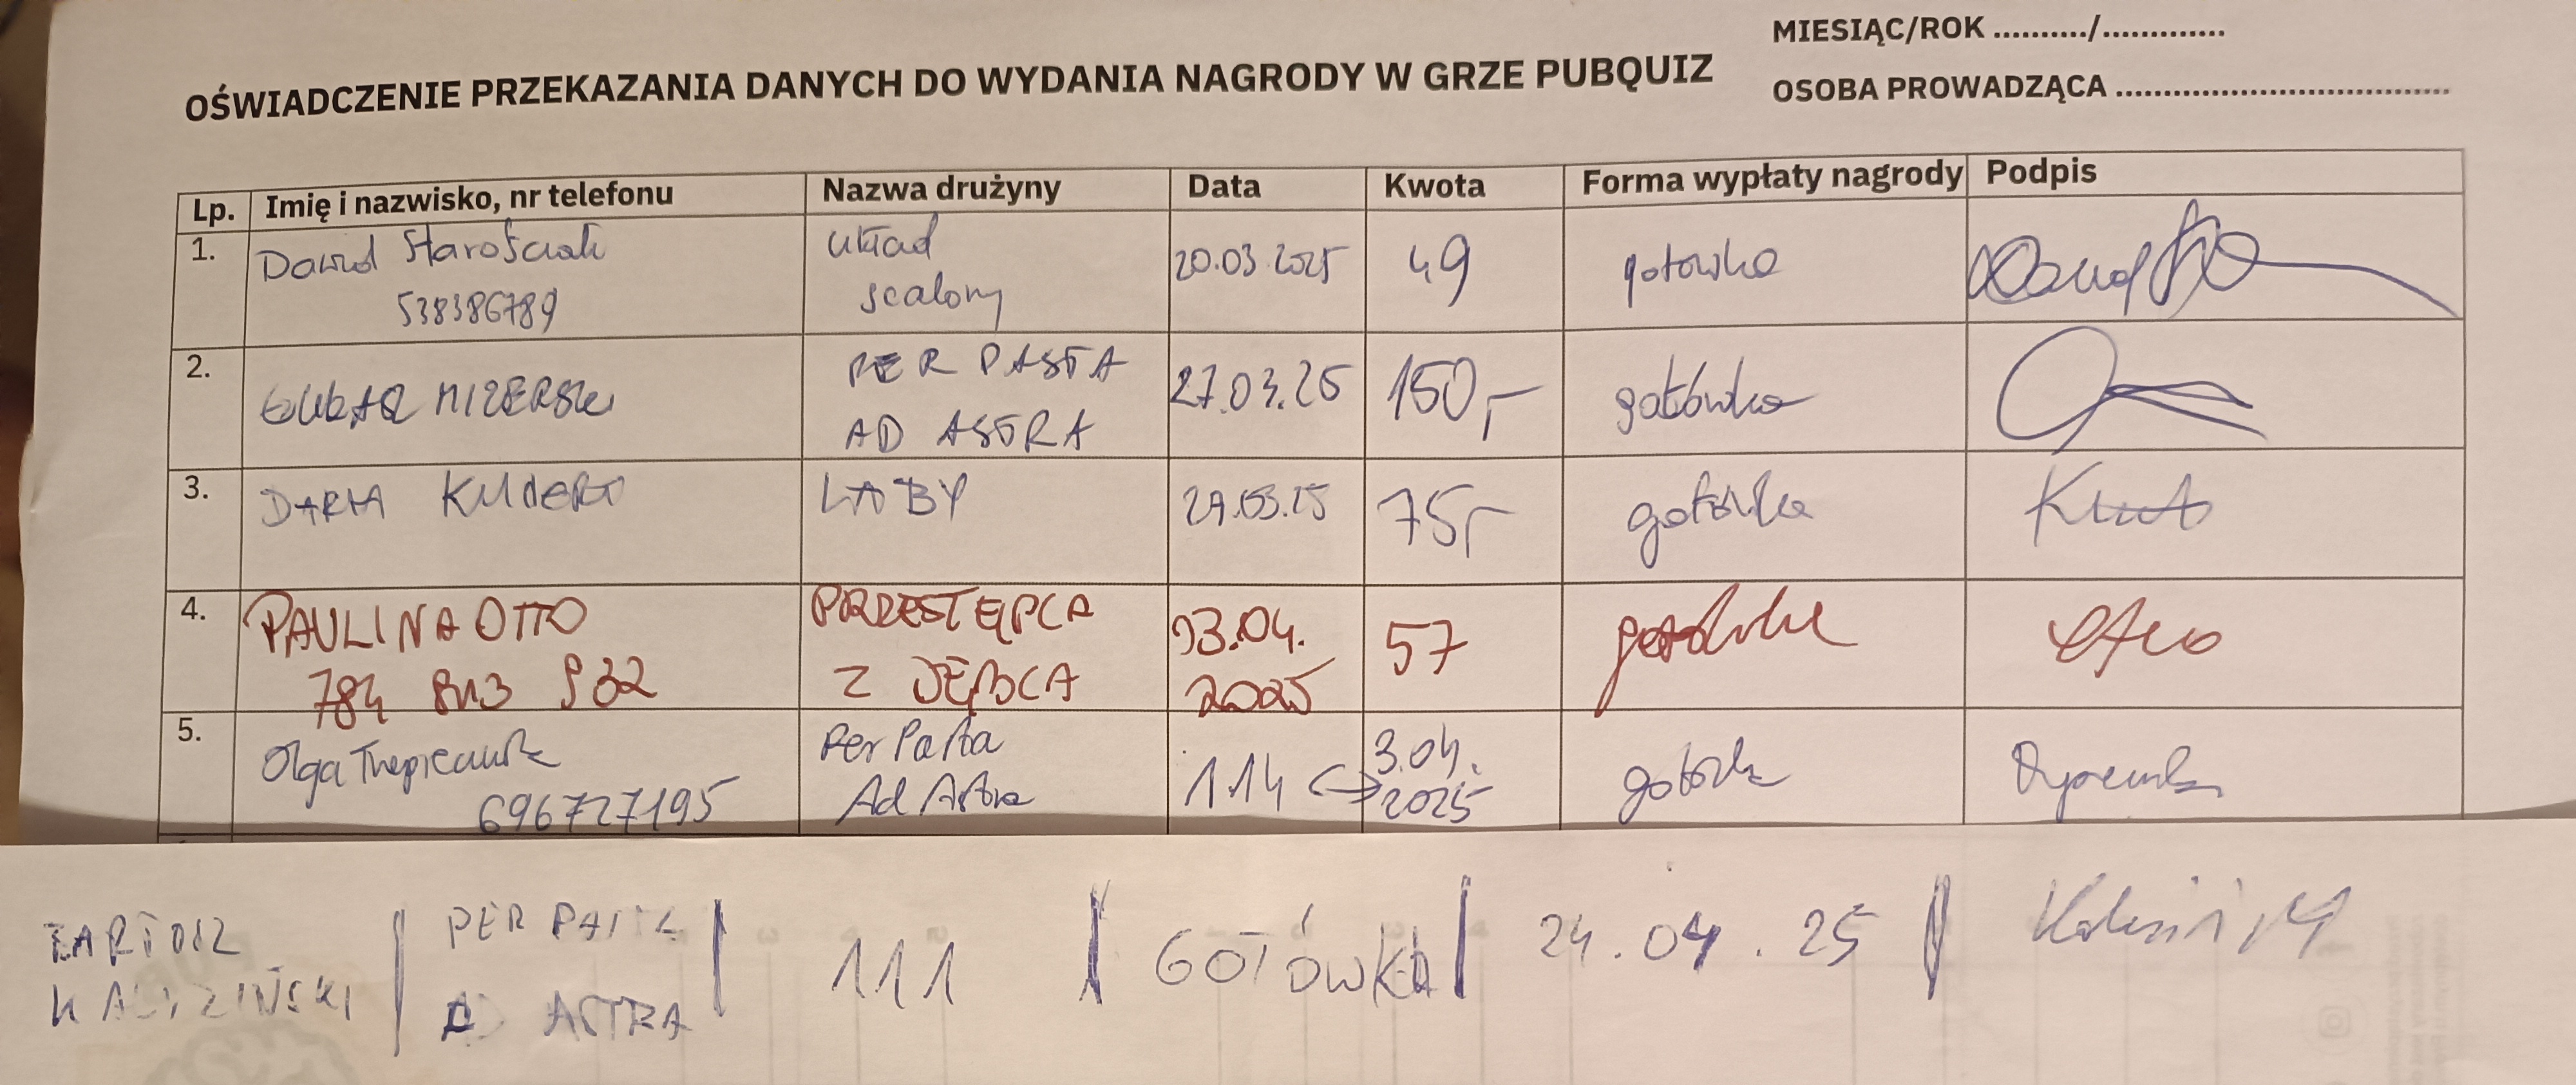 MIESIĄC/ROK ........../.............
OŚWIADCZENIE PRZEKAZANIA DANYCH DO WYDANIA NAGRODY W GRZE PUBQUIZ
OSOBA PROWADZĄCA ...................................
Lp. Imię i nazwisko, nr telefonu Nazwa drużyny Data Kwota Forma wypłaty nagrody Podpis
1. Dawid Starościak układ 20.03.2025 49 gotówka
538386789 scalony
2. MIZERSKI PER PASTA 27.03.25 150,- gotówka
AD ASTRA
3. DARIA KUDERT LABY 27.03.25 75,- gotówka
4. PAULINA OTTO PRZESTĘPCA 03.04. 57 gotówka Otto
784 Z DĘBCA 2025
5. Olga Per Pasta 114 3.04. gotówka
696727195 Ad Astra 2025
BARTOSZ PER PASTA 111 GOTÓWKA 24.04.25
AD ASTRA